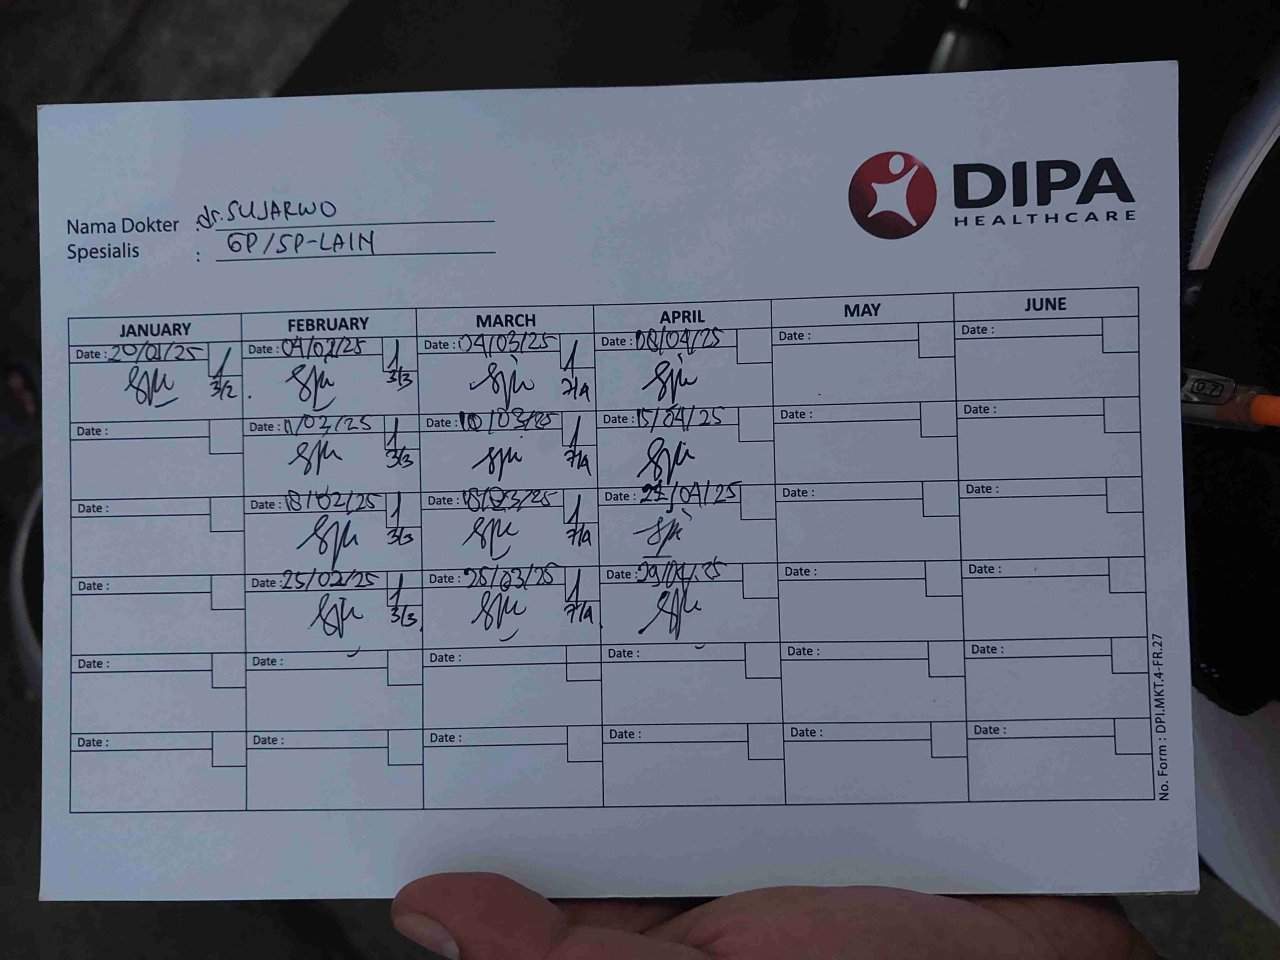 DIPA
HEALTHCARE
Nama Dokter : dr. SUJARWO
Spesialis : GP/SP-LAIN
JANUARY FEBRUARY MARCH APRIL MAY JUNE
Date : 20/01/25 Date : 04/02/25 Date : 04/03/25 Date : 08/04/25 Date : Date :
3/2 3/3 7/4
Date : Date : 11/03/25 Date : 10/03/25 Date : 15/04/25 Date : Date :
3/3 7/4
Date : Date : 18/02/25 Date : 18/03/25 Date : 22/04/25 Date : Date :
3/3 7/4
Date : Date : 25/02/25 Date : 25/03/25 Date : 29/04/25 Date : Date :
3/3 7/4
Date : Date : Date : Date : Date : Date :
Date : Date : Date : Date : Date : Date :
No. Form : DPI.MKT.4-FR.27
0.7